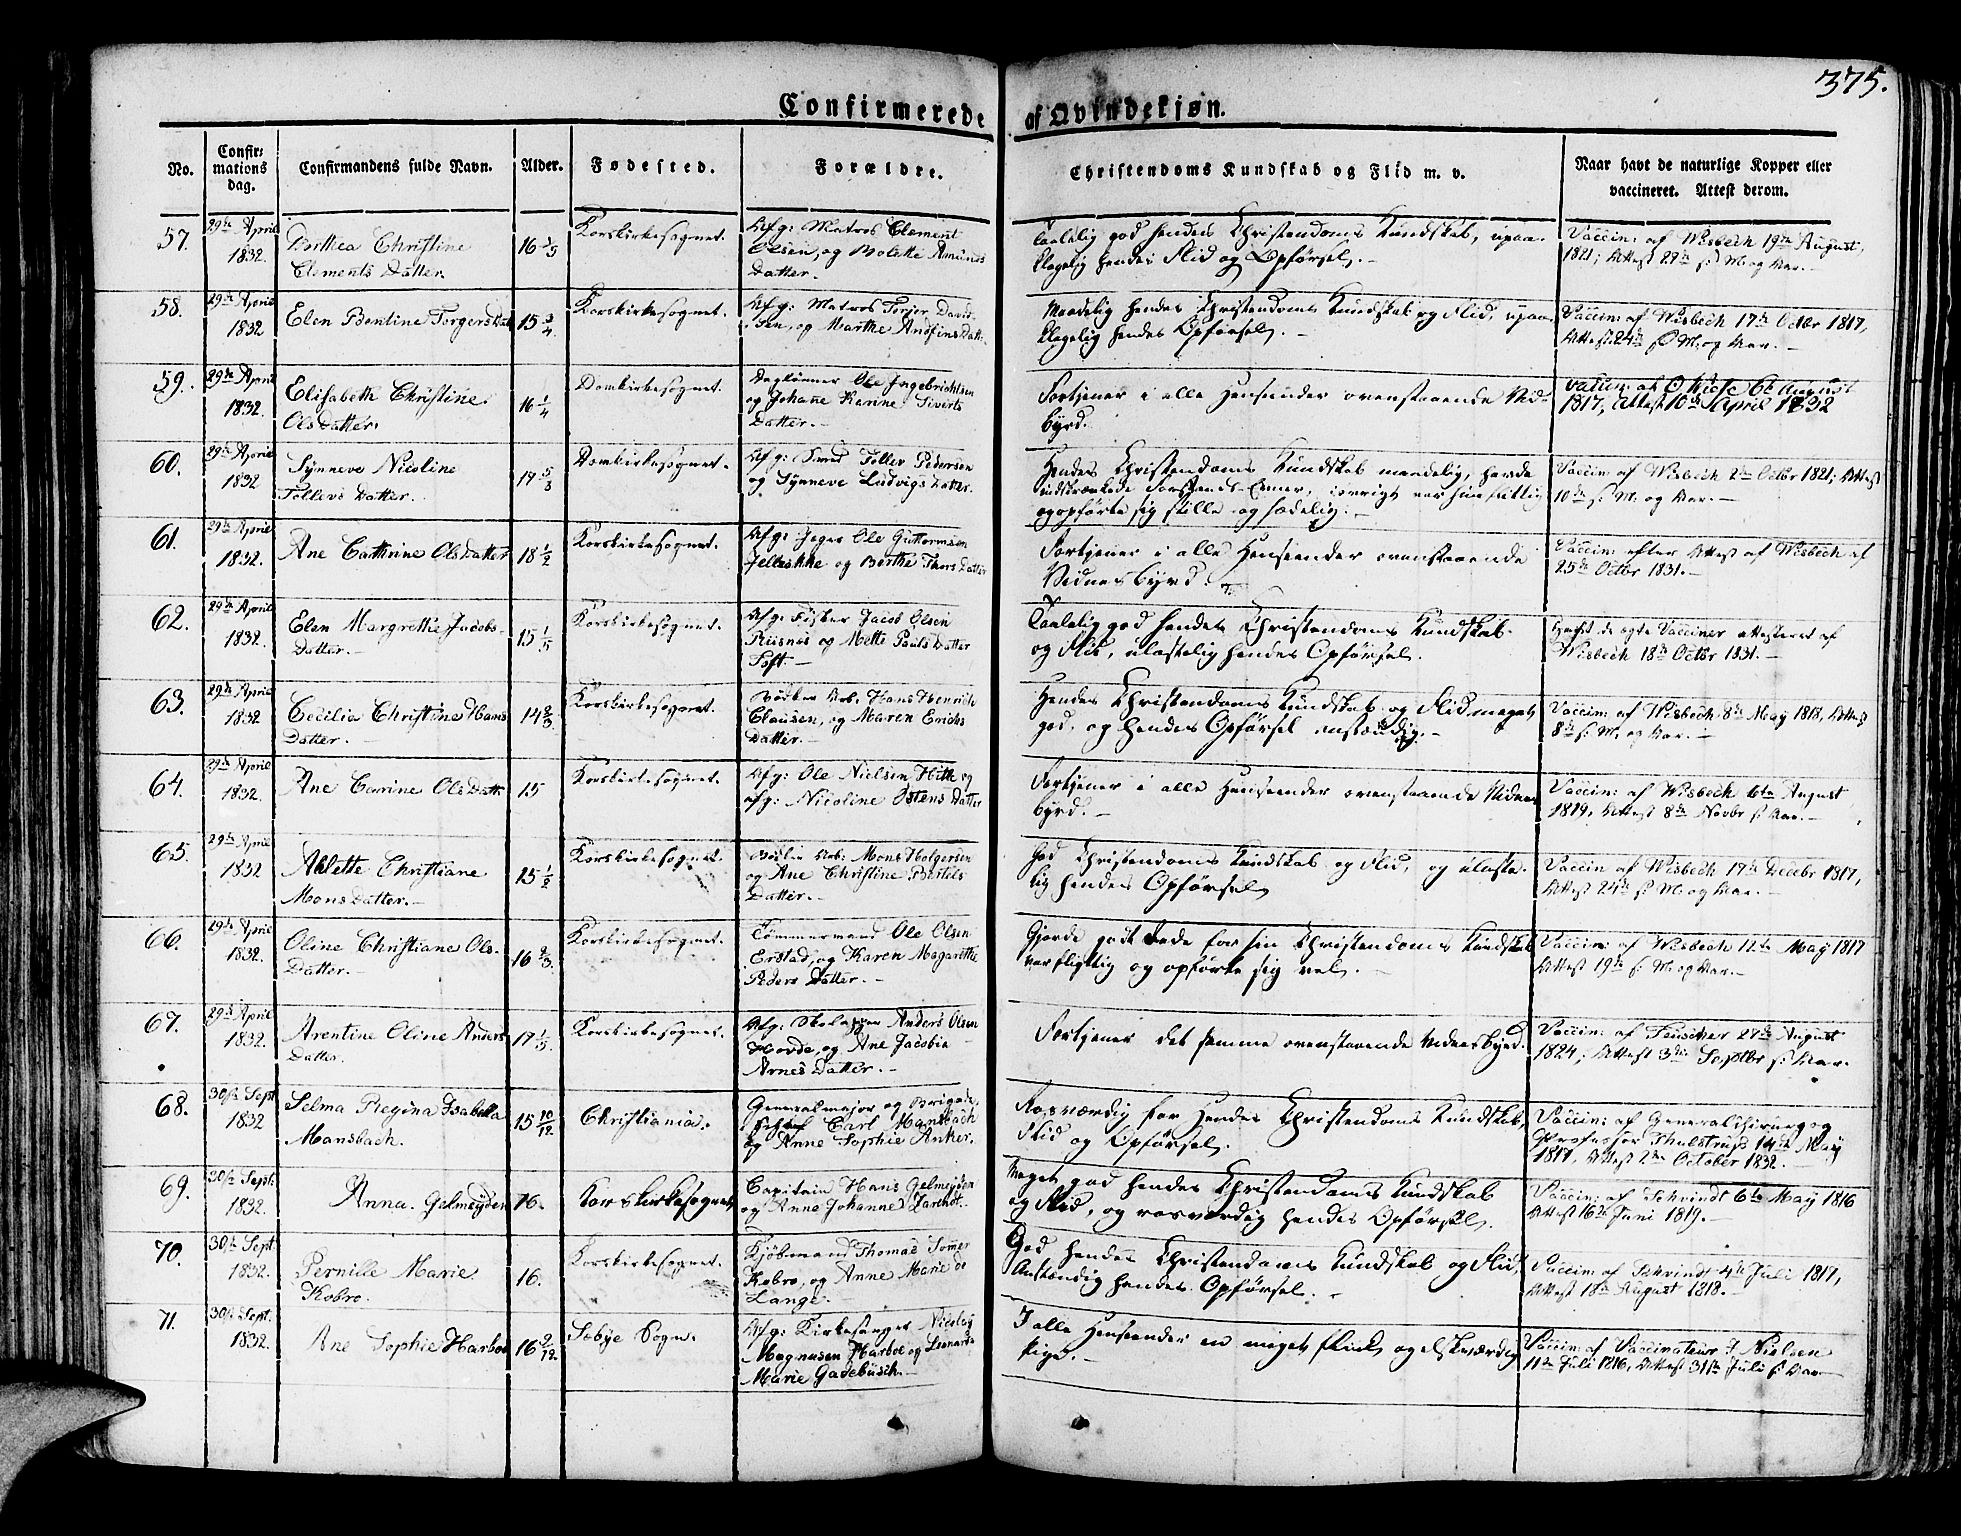 375.
Confirmerede af Qvindekjøn.
No.
Confir-
mations
dag.
Confirmandens fulde Navn.
Alder.
Fødested.
Forældre.
Christendoms Kundskab og Flid m. v.
Naar havt de naturlige Kopper eller
vaccineret. Attest derom.
57.
29de April
1832.
Dorthea Christine
Clements Datter.
16
Korskirkesognet.
Afg: Matros Clement
Olsen, og Bolette Amunds
Datter.
Taalelig god hendes Christendoms Kundskab, upaa-
klagelig hendes Flid og Opførsel.
Vaccin: af Wisbech 19de August
1821; Attest
58.
29de April
1832
Elen Bentine Torgers Dat
15 3/4
Korskirkesognet.
Afg: Matros Torjer David-
sen, og Marthe Andfins Datt:
Maadelig hendes Christendoms Kundskab og Flid, upaa-
klagelig hendes Opførsel.
Vaccin: af Wisbech 17de Octbr 1817,
Attest 24de
59.
29de April
1832.
Elisabeth Christine
Ols Datter.
16 1/4
Domkirkesognet.
Daglønner Ole Ingebrichtsen
og Johanne Karine Siverts
Datter.
Fortjener i alle Henseender ovenstaaende Vid-
byrd.
Vaccin: af 6te August
1817, Attest 10de April 1832
60.
29de April
1832
Synneve Nicoline
Tollevs Datter.
17
Domkirkesognet.
Afg: Smed Tollev Pedersen
og Synneve Ludvigs Datter.
Hendes Christendoms Kundskab maadelig, havde
indskrænkede Forstands-Evner, iøvrigt var hun flittig
og opførte sig stille og sædelig.
Vaccin af Wisbech 2den Octbr 1821; Attest
10de
61.
29de April
1832.
Ane Cathrine Ols Datter
18 1/2
Korskirkesognet.
Afg: Ole Guttormsen
og Berthe Thors Datter
Fortjener i alle Henseender ovenstaaende
Vidnesbyrd.
Vaccin: efter Attest af Wisbech af
25de Octbr 1831.
62.
29de April
1832.
Elen Margrethe Jacobs-
Datter.
15 1/5
Korskirkesognet.
Afg: Fisker Jacob Olsen
og Mette Pauls Datter
Toft
Taalelig god hendes Christendoms Kundskab
og Flid, ulastelig hendes Opførsel.
Havt de ægte Vacciner attesteret af
Wisbech 18de Octbr 1831.
63.
29de April
1832
Cecilia Christine Hans
Datter.
14 2/3
Korskirkesognet.
Bødker Arb: Hans Henrich
Clausen, og Maren Erichs
Datter.
Hendes Christendoms Kundskab og Flid meget
god, og hendes Opførsel anstændig.
Vaccin: af Wisbech 8de May 1818, Attest
8de
64.
29de April
1832.
Ane Carine Ols Datt:
15
Korskirkesognet.
Afg: Ole Nielsen Hitle og
afg: Nicoline Ostens Datter
Fortjener i alle Henseender ovenstaaende Vidnes-
byrd.
Vaccin: af Wisbech 6te August
1819, Attest 8de Novbr
65.
29de April
1832
Ablette Christiane
Mons Datter.
15 1/2
Korskirkesognet.
Bødker Arb: Mons Holgersen
og Ane Christine Bertels
Datter.
God Christendoms Kundskab og Flid, og ulaste-
lig hendes Opførsel
Vaccin af Wisbech 17de Decebr 1817,
Attest 24de
66.
29de April
1832.
Oline Christiane Ols-
Datter.
16 2/3.
Korskirkesognet.
Tømmermand Ole Olsen
Erstad, og Karen Magarethe
Peders Datter.
Gjorde godt Rede for sin Christendoms Kundskab
var flittig og opførte sig vel.
Vaccin: af Wisbech 12te May 1817
Attest 19de
67.
29de April
1832.
Arentine Oline Anders
Datter.
17 1/3.
Korskirkesognet.
Afg: Anders Olsen
Hovde, og Ane Jacobie
Arnes Datter.
Fortjener det samme ovenstaaende Vidnesbyrd.
Vaccin: af 27de August
1824, Attest 3die Septbr
68.
30te Sept
1832
Selma Regina Isabella
Mansbach.
15 10/12
Christiania.
Generalmajor og Brigade-
Carl Mansbach
og Anne Sophie Anker.
Rosværdig for hendes Christendoms Kundskab,
Flid og Opførsel.
Vaccin: af Generalchirurg og
Professor Thulstrup 14de May
1817, Attest 2den October 1832.
69.
30te Sept:
1832.
Anna Gelmeyden
16.
Korskirkesognet
Capitain Hans Gelmeyden
og Anne Johanne
Meget god hendes Christendoms Kundskab
og Flid, og rosværdig hendes Opførsel.
Vaccin: af Schvindt 6te May 1816
Attest 16de Juni 1819.
70.
30te Sept.
1832.
Pernille Marie
Kobro.
16.
Korskirkesognet.
Kjøbmand Thomas Tømer
Kobro, og Anne Marie de
Lange.
God hendes Christendoms Kundskab og Flid,
Anstændig hendes Opførsel.
Vaccin: af Schvindt 4de Juli 1817,
Attest 18de August 1818.
71.
30te Sept.
1832.
Ane Sophie Harboe
16 9/12.
Sebye Sogn.
Afg: Kirkesanger Nicolay
Magnusen Harboe og Leonarda
Marie Gadebusch.
I alle Henseender en meget flink og elskværdig
Pige.
Vaccin: af Vaccinateur J. Nielsen
11te Juli 1816, Attest 31te Juli